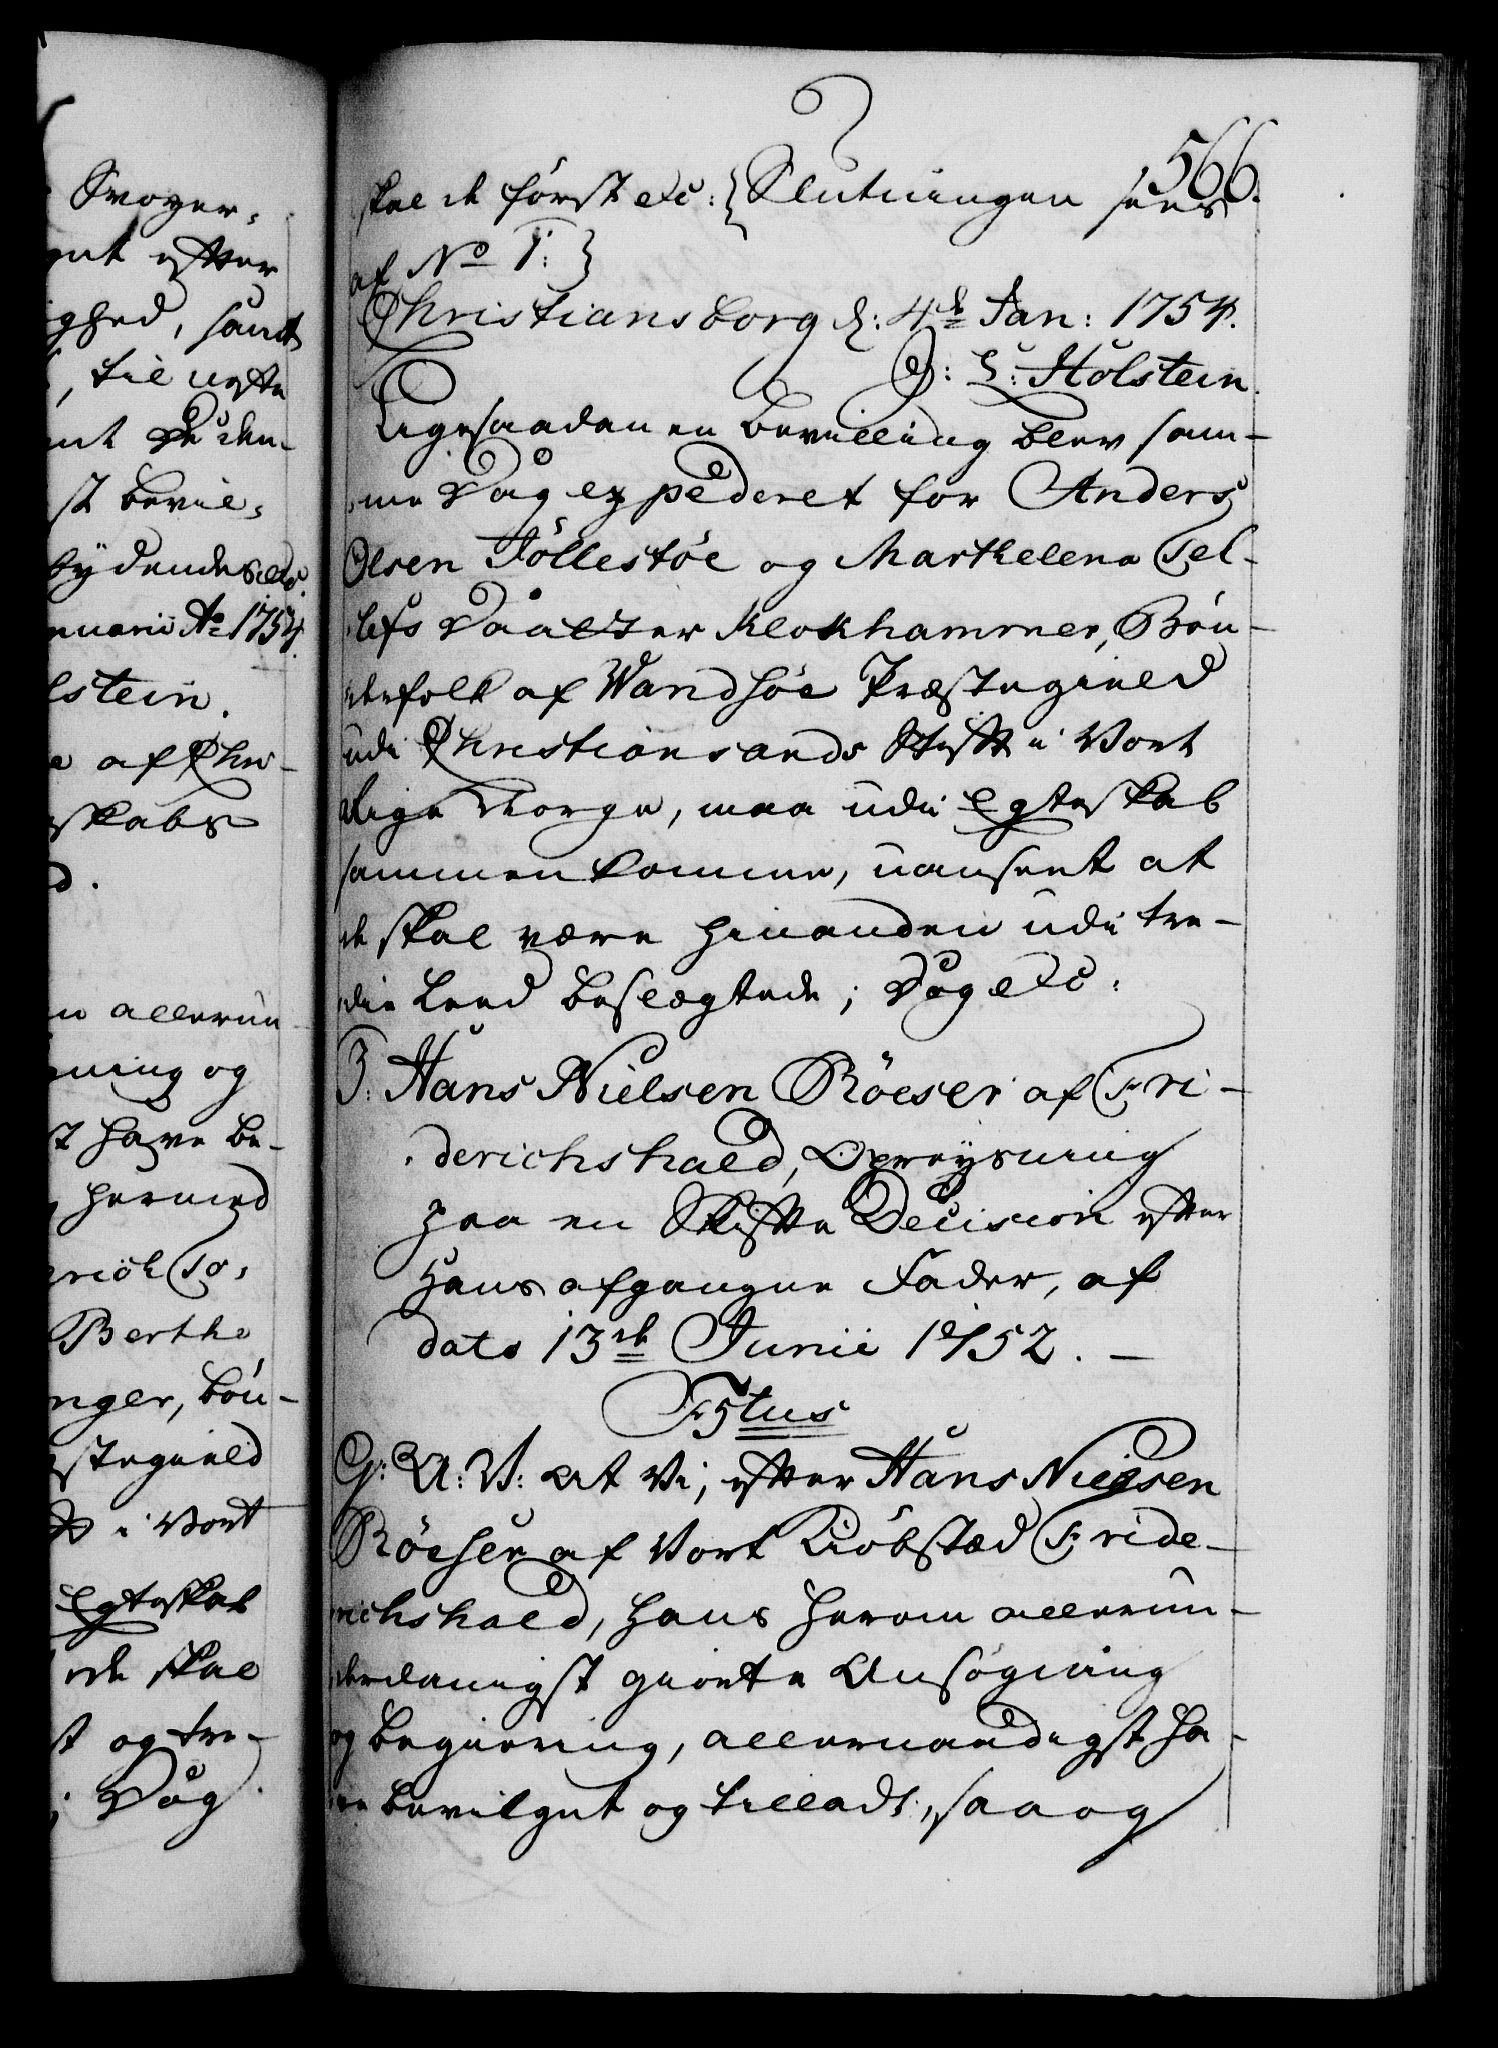 566.
skal de först etc: { Slutningen sees
af No 1: }
Christiansborg d: 4de Jan: 1754.
J: L: Holstein.
Ligesaadan en Bevilling blev sam-
me Dag expederet for Anders
Olsen Föllestöe og Marthelena Tel-
lefs Daatter Klokhammer, Bön-
derfolk af Wandsöe Præstegield
udi Christiansands Stift i Vort
Rige Norge, maa udi Egteskab
sammenkomme, uanseet at
de skal være hinanden udi tre-
die Leed beslægtede; Dog etc:
3: Hans Nielsen Röeser af Fri-
derichshald, Opreysning
paa en Skifte Decision efter
Hans afgangne Fader, af
dato 13de Junii 1752. -
F5tus
G: A: V: At Vi, efter Hans Nielsen
Röeser af Vort Kiöbstæd Fride-
richshald, hans herom allerun-
derdanigst giorte Ansögning
og Begiering, allernaadigst ha-
ve bevilget og tilladt, saa og
Svoger,
efter
ighed, samt
, til
st bevil,
bydendes etc.
nuarii Ao 1754.
lstein.
e af Chri-
skabs
d.
n allerun-
ning og
st have be-
hermed
erich To,
Berthe
nger, Bön-
stegield
i Vort
Egteskab
de skal
st og tre-
; Dog